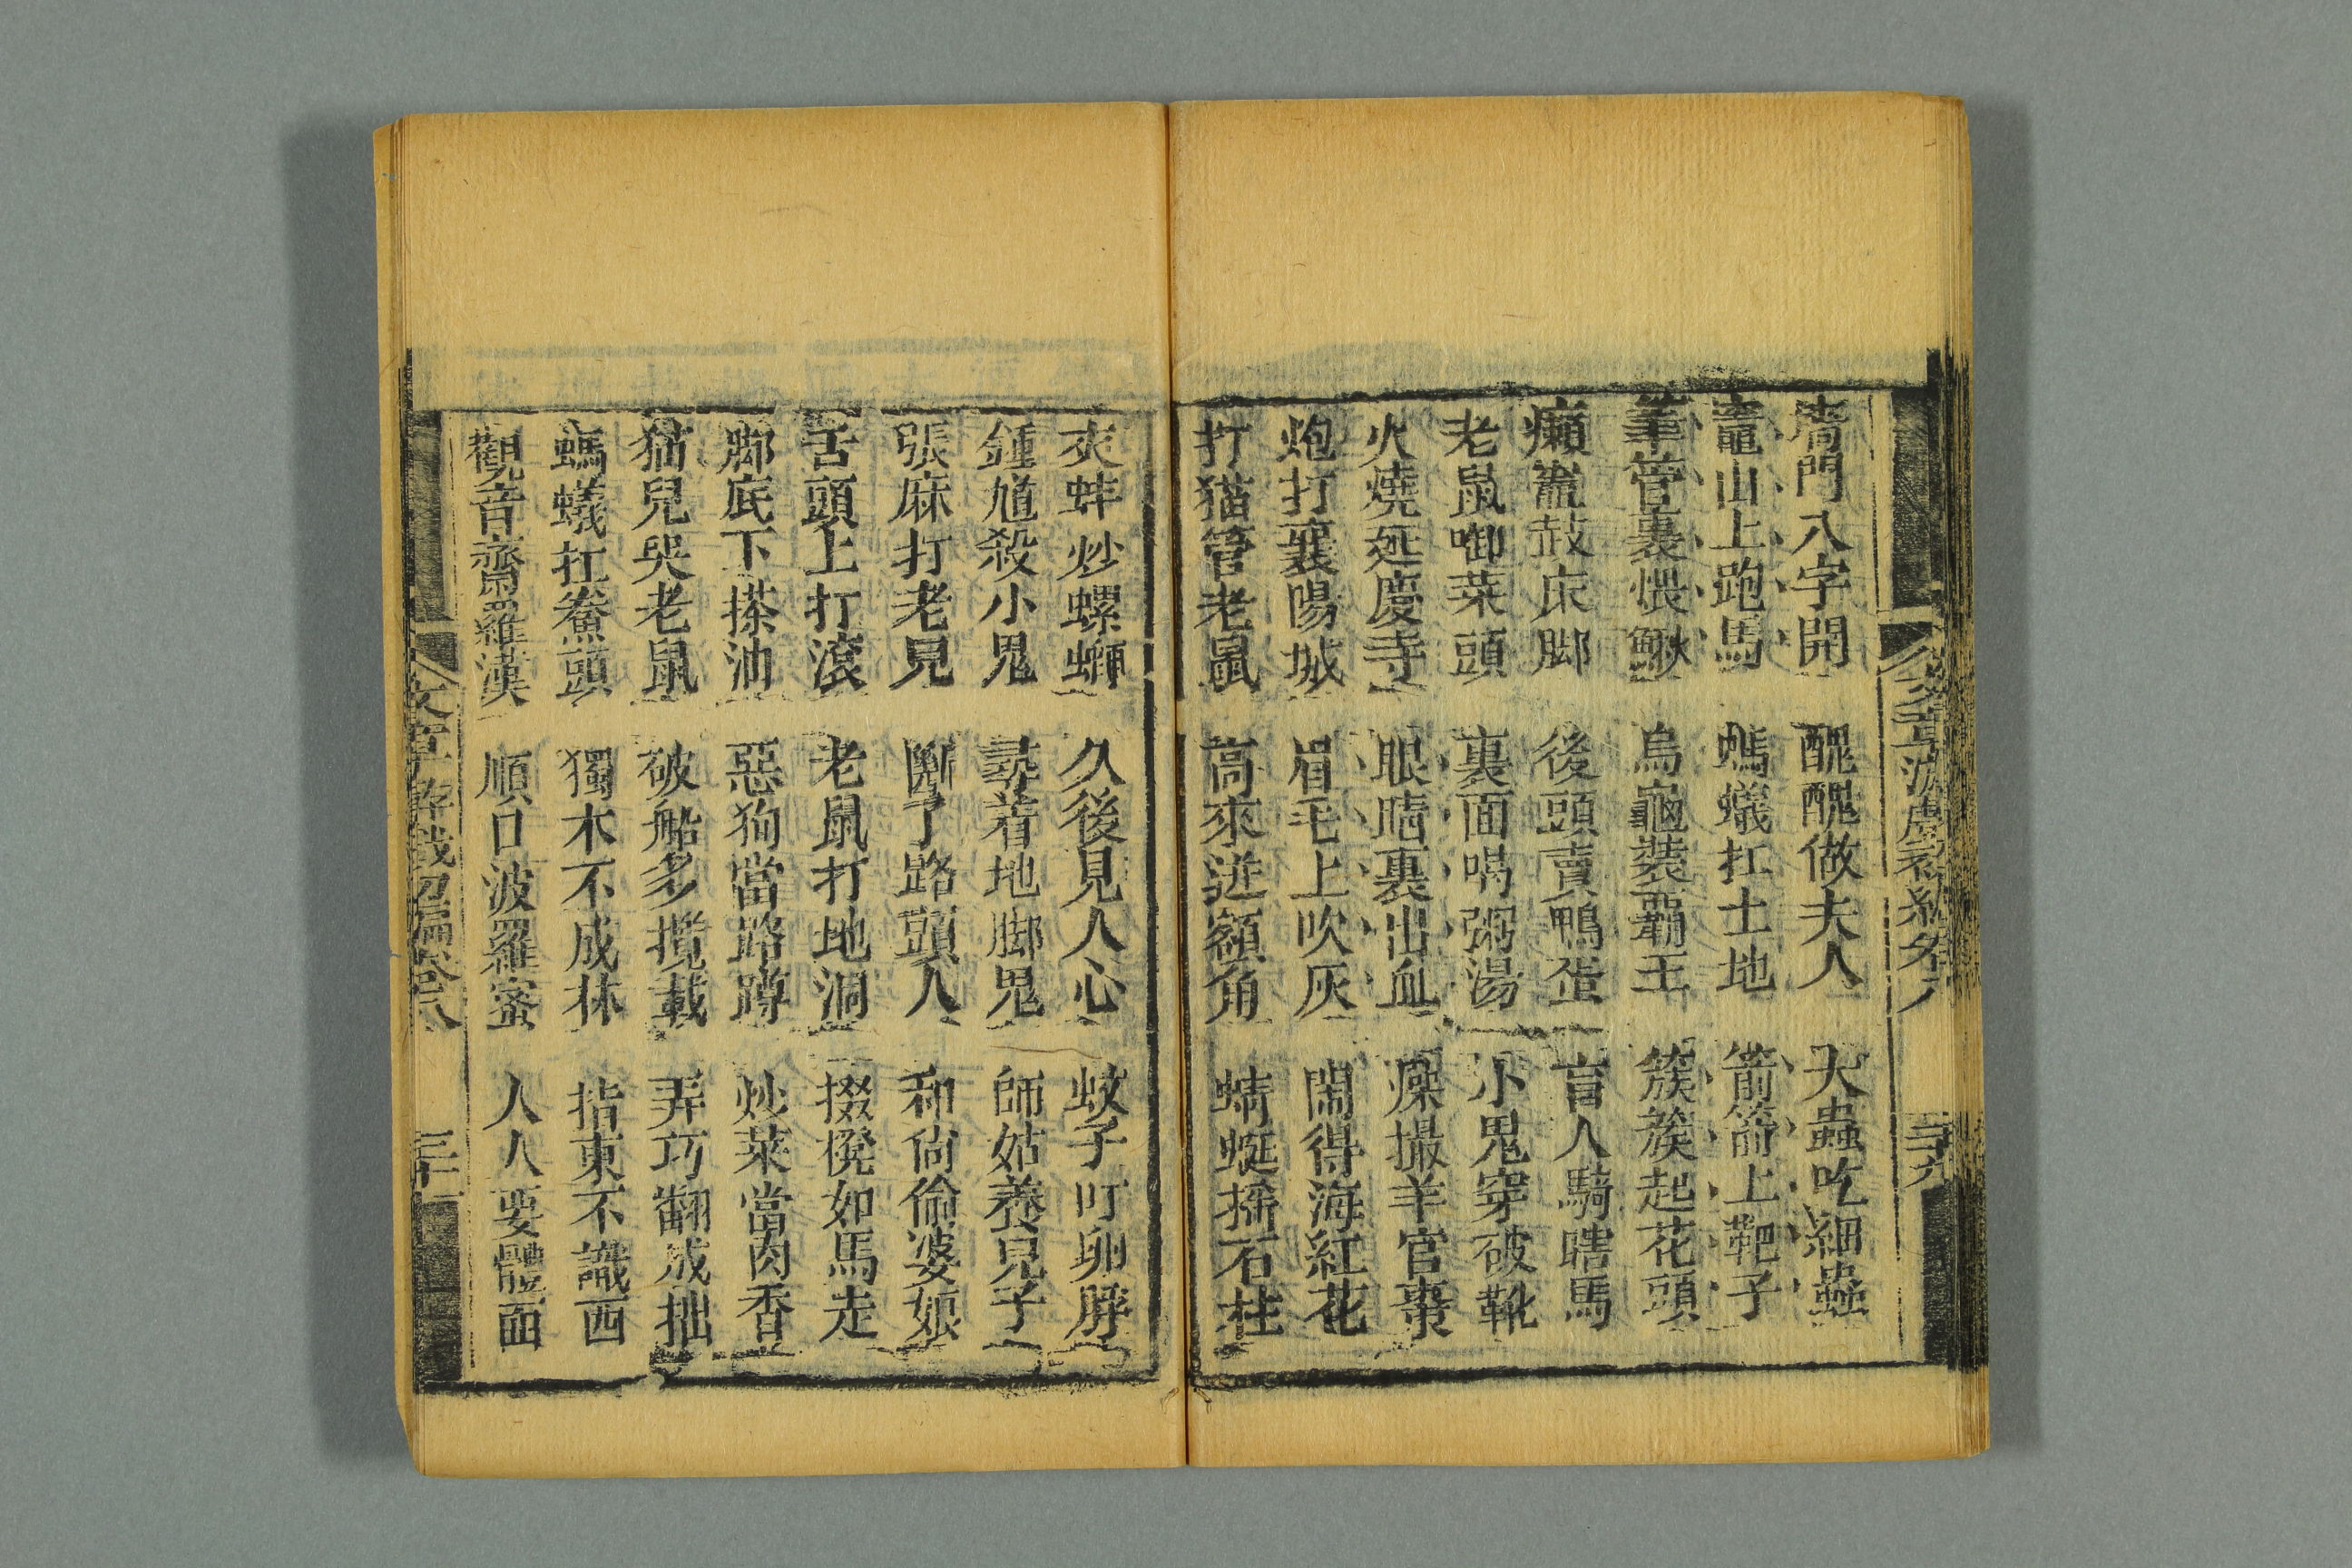 門八字開　醜醜做夫人　大蟲吃細蟲
鼇山上跑馬　螞蟻扛土地　箭箭上靶子
筆管裏煨鰍　烏龜裝霸王　簇簇起花頭
癩鼇鼓床脚　後頭賣鴨蛋　盲人騎瞎馬
老鼠啣菜頭　裏面喝粥湯　小鬼穿破靴
火燒延慶寺　眼睛裏出血　燥撮羊官棗
炮打襄陽城　眉毛上吹灰　閙得海紅花
打猫管老鼠　高來逬額角　蜻蜓搖石柱
夾蚌炒螺螄　久後見人心　蚊子叮卵脬
鍾馗殺小鬼　尋着地脚鬼　師姑養兒子
張麻打老見　斷了路頭人　和尙偷婆娘
舌頭上打滾　老鼠打地洞　掇櫈如馬走
脚底下搽油　惡狗當路蹲　炒菜當肉香
猫兒哭老鼠　破船多攬載　弄巧翻成拙
螞蟻扛鯗頭　獨木不成林　指東不識西
觀音齋羅漢　順口波羅蜜　人人要體面
三十